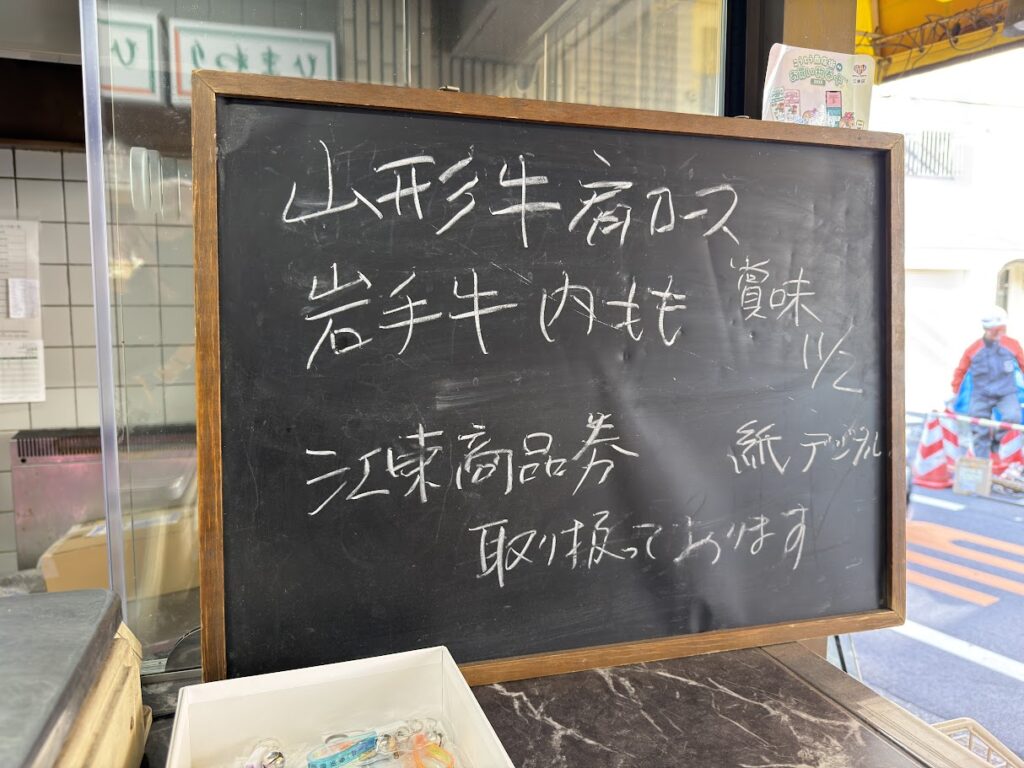 山形牛 肩ロース
岩手牛 内もも 賞味
11/2
江東商品券 紙 デジタル
取り扱っております